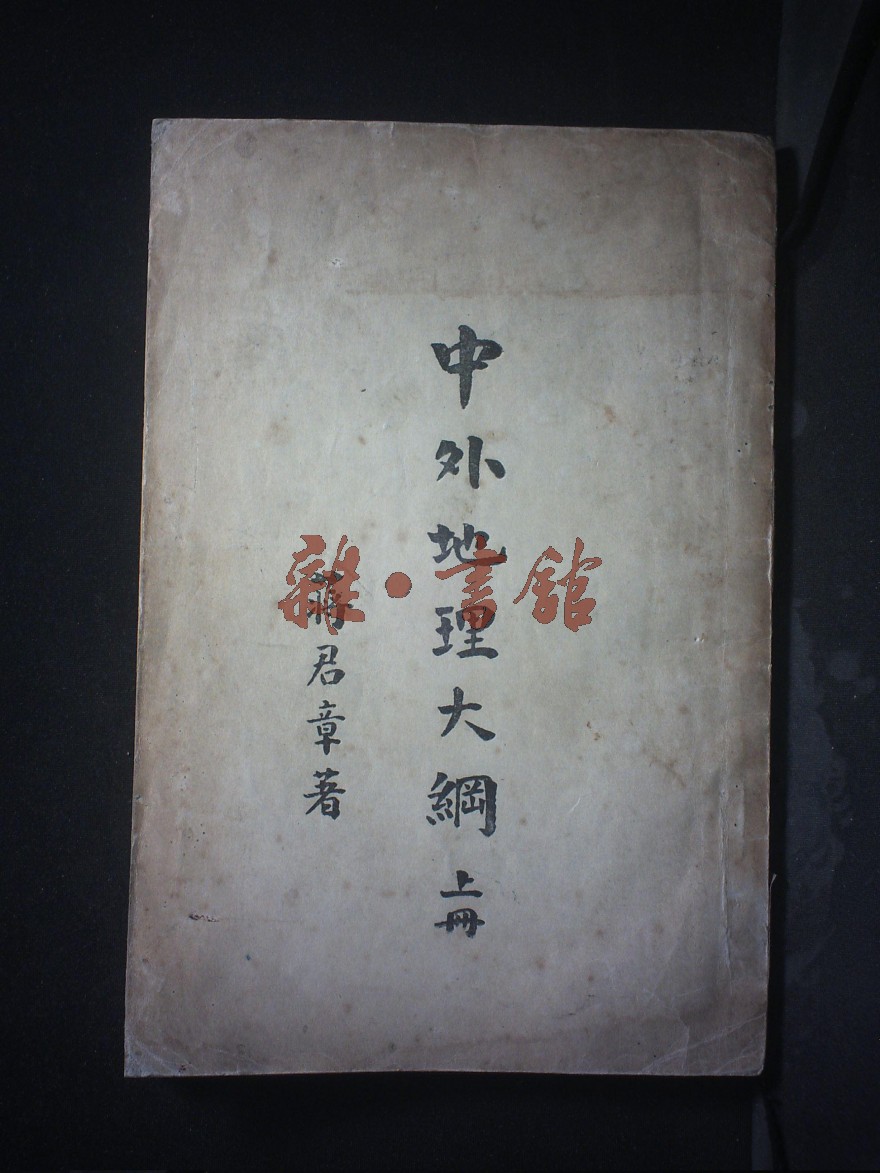 中外地理大綱 上冊
蔣君章著
雜·書館